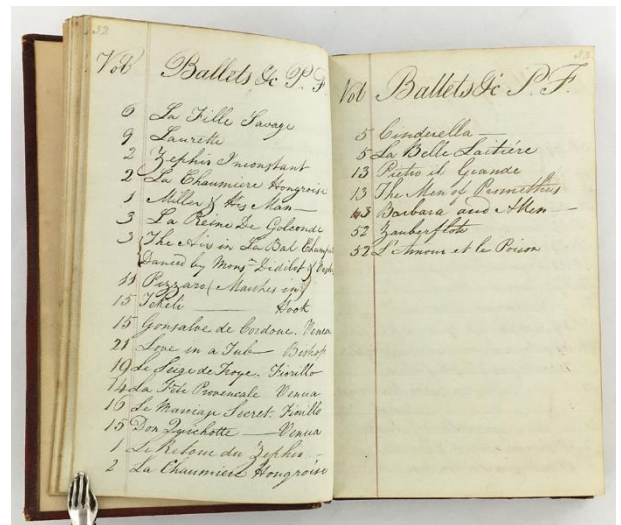 32
Vol Ballets &c P. F.
6 La Fille Savage
9 Laurette
2 Zephir Inconstant
2 La Chaumiere Hongroise
1 Miller & His Man
3 La Reine De Golconde
3 The Airs in La Bal Champet
Danced by Mons.r Didilot &
Pizzaro (Marches in)
15 Tekeli — Hook
15 Gonsalve de Cordoue. Venua
21 Love in a Tub — Bishop
19 Le Seige de Troye. Fiorillo
14 La Fête Provencale Venua
16 Le Mariage Secret. Fiorillo
15 Don Quichotte — Venua
1 Le Retour du Zephir —
2 La Chaumiere Hongroise
33
Vol Ballets &c P. F.
5 Cinderella —
5 La Belle Laitiére
13 Pietro il Grande
13 The Men of Prometheus
43 Barbara and Allen —
52 Zauberflote
52 L'Amour et le Poison